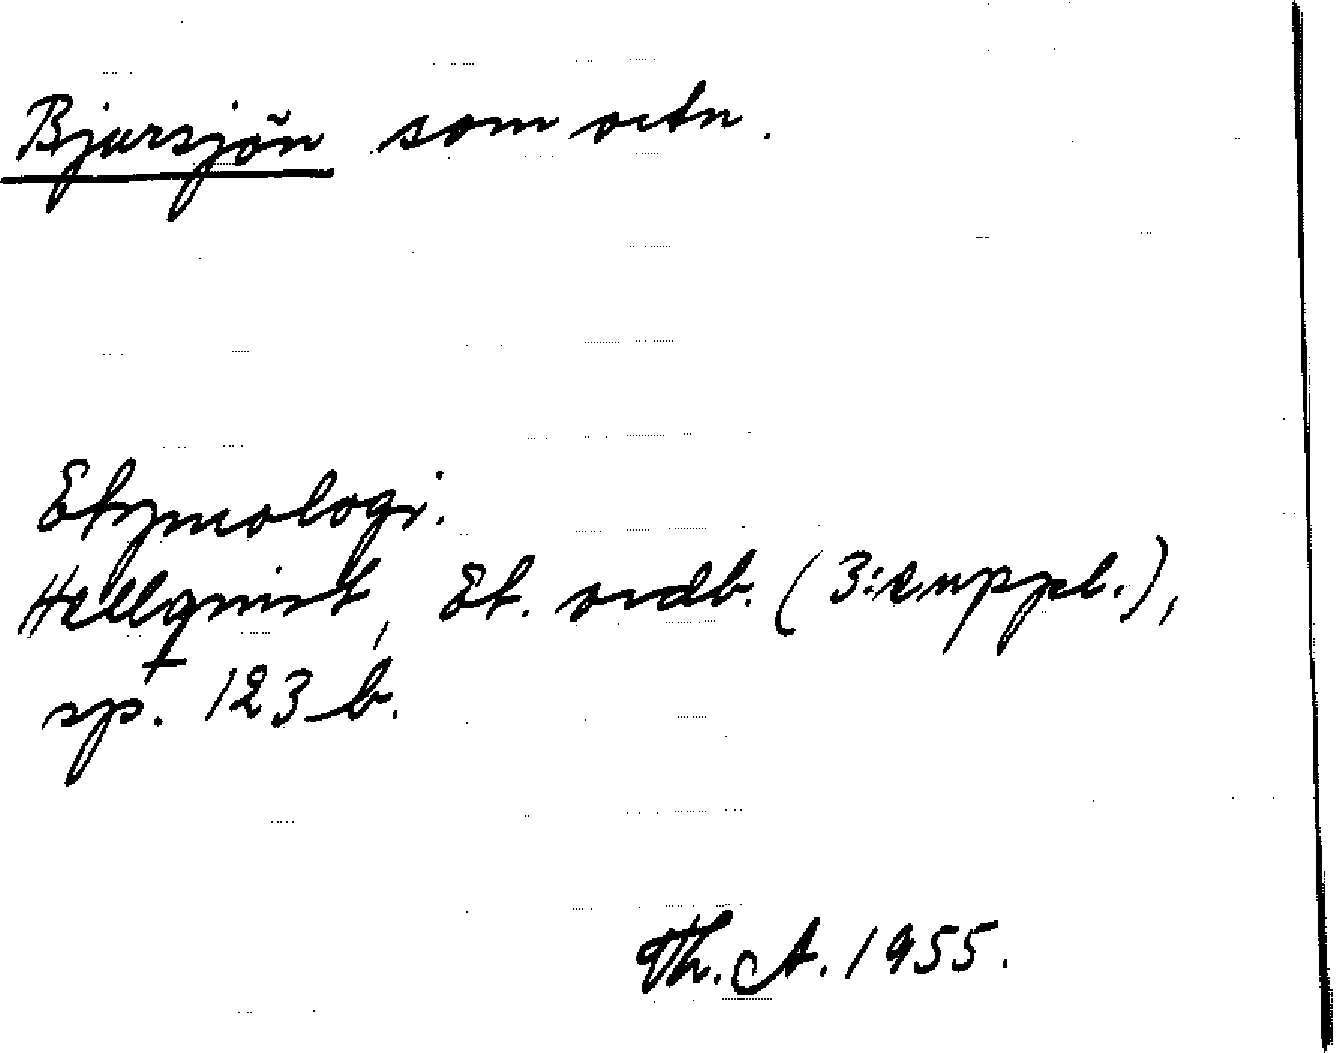 Bjursjön som ortn.
Etymologi.
Hellquist, Et. ordb. (3:e uppl.),
sp. 123 b.
Th. A. 1955.